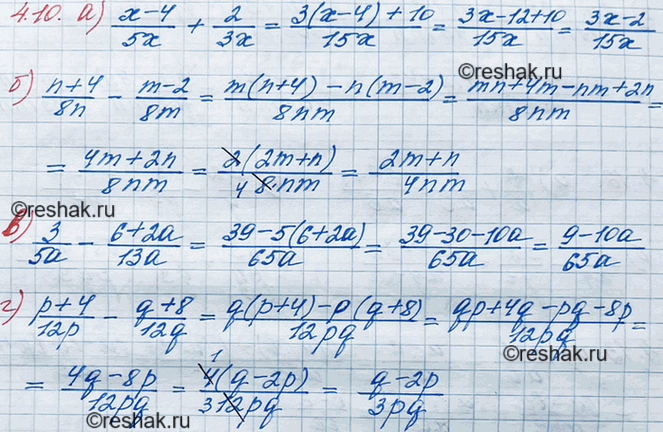 4.10. а) (x-4)/(5x) + 2/(3x) = (3(x-4)+10)/(15x) = (3x-12+10)/(15x) = (3x-2)/(15x)
©reshak.ru
б) (n+4)/(8n) - (m-2)/(8m) = (m(n+4)-n(m-2))/(8nm) = (mn+4m-nm+2n)/(8nm) =
= (4m+2n)/(8nm) = (2(2m+n))/(4 8·nm) = (2m+n)/(4nm)
©reshak.ru
в) 3/(5a) - (6+2a)/(13a) = (39-5(6+2a))/(65a) = (39-30-10a)/(65a) = (9-10a)/(65a)
г) (p+4)/(12p) - (q+8)/(12q) = (q(p+4)-p(q+8))/(12pq) = (qp+4q-pq-8p)/(12pq) =
©reshak.ru
= (4q-8p)/(12pq) = (1 4(q-2p))/(3 12pq) = (q-2p)/(3pq)
©reshak.ru